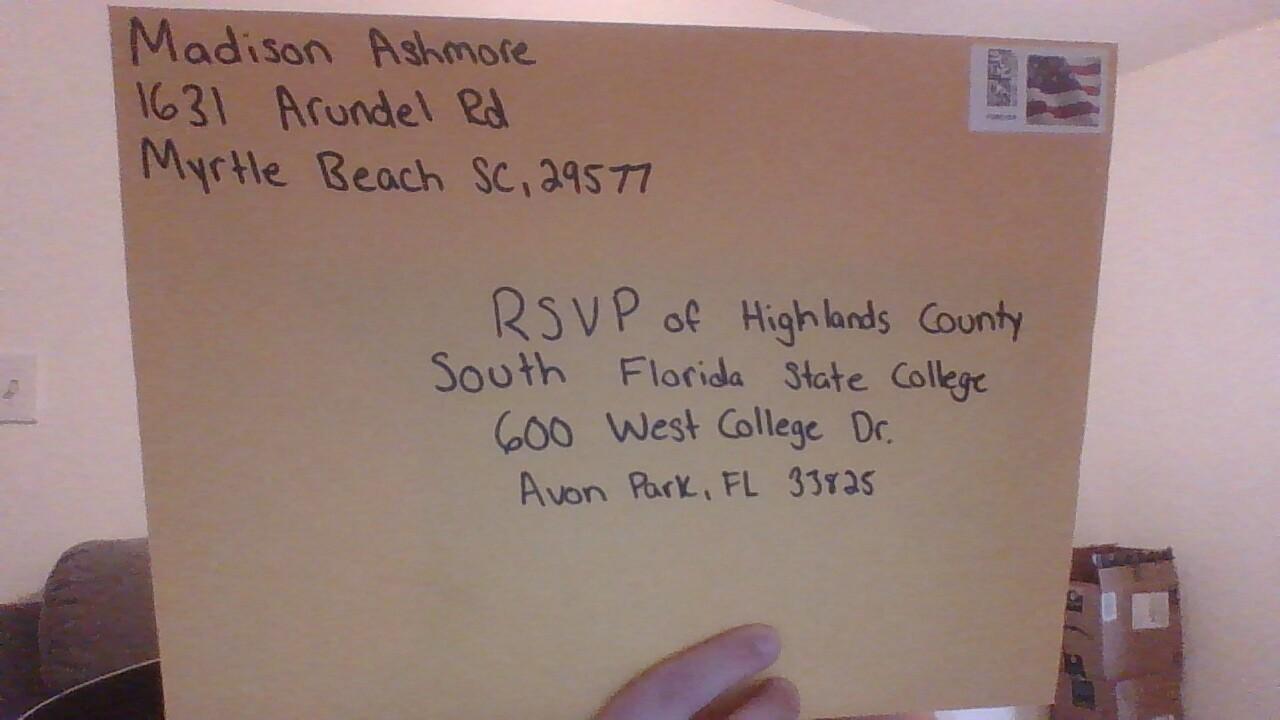 Madison Ashmore
1631 Arundel Rd
Myrtle Beach SC, 29577
FOREVER
RSVP of Highlands County
South Florida State College
600 West College Dr.
Avon Park, FL 33825